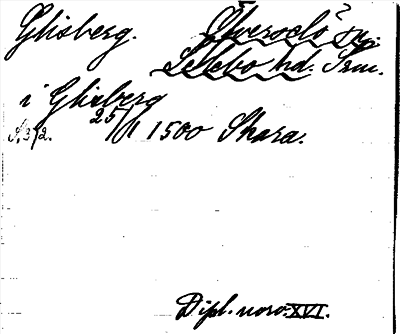 Glisberg. Öfverselö sn.
Selebo hd. Srm.
i Glisberg
25/1 1500 Skara.
Dipl. norv. XVI.